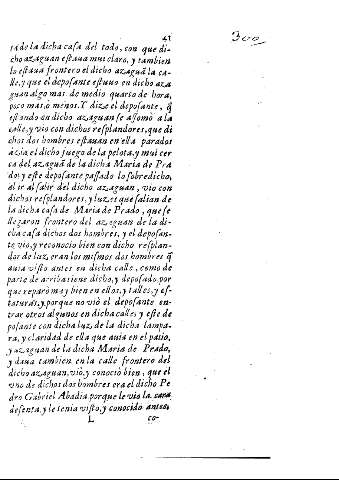 41
300
rado la dicha casa del todo, con que di-
cho azaguan estaua muy claro, y tambien
lo estaua frontero el dicho azaguã la ca-
lle, y que el deposante estuuo en dicho aza
guan algo mas de medio quarto de hora,
poco mas, ò menos. Y dize el deposante, q̃
estando en dicho azaguan se assomò a la
calle, y vio con dichos resplandores, que di
chos dos hombres estauan en ella parados
azia el dicho juego de la pelota, y mui cer
ca del azaguã de la dicha Maria de Pra
do, y este deposante passado lo sobredicho,
al ir al salir del dicho azaguan, vio con
dichos resplandores, y luz, es que salian de
la dicha casa de Maria de Prado, que se
llegaron frontero del azaguan de la di-
cha casa dichos dos hombres, y el deposan-
te vio, y reconocio bien con dicho resplan-
dor de luz, eran los mismos dos hombres q̃
auia visto antes en dicha calle, como de
parte de arriba tiene dicho, y deposado, por
que reparò muy bien en ellos, y talles, y es-
taturas, y porque no viò el deposante en-
trar otros algunos en dicha calle, y este de
posante con dicha luz de la dicha lampa-
ra, y claridad de ella que auia en el patio,
y azaguan de la dicha Maria de Prado,
y daua tambien en la calle frontero del
dicho azaguan, viò, y conociò bien, que el
vno de dichos dos hombres era el dicho Pe
dro Gabriel Abadia porque le vio la cara
desenta, y le tenia visto, y conocido antes,
L co-